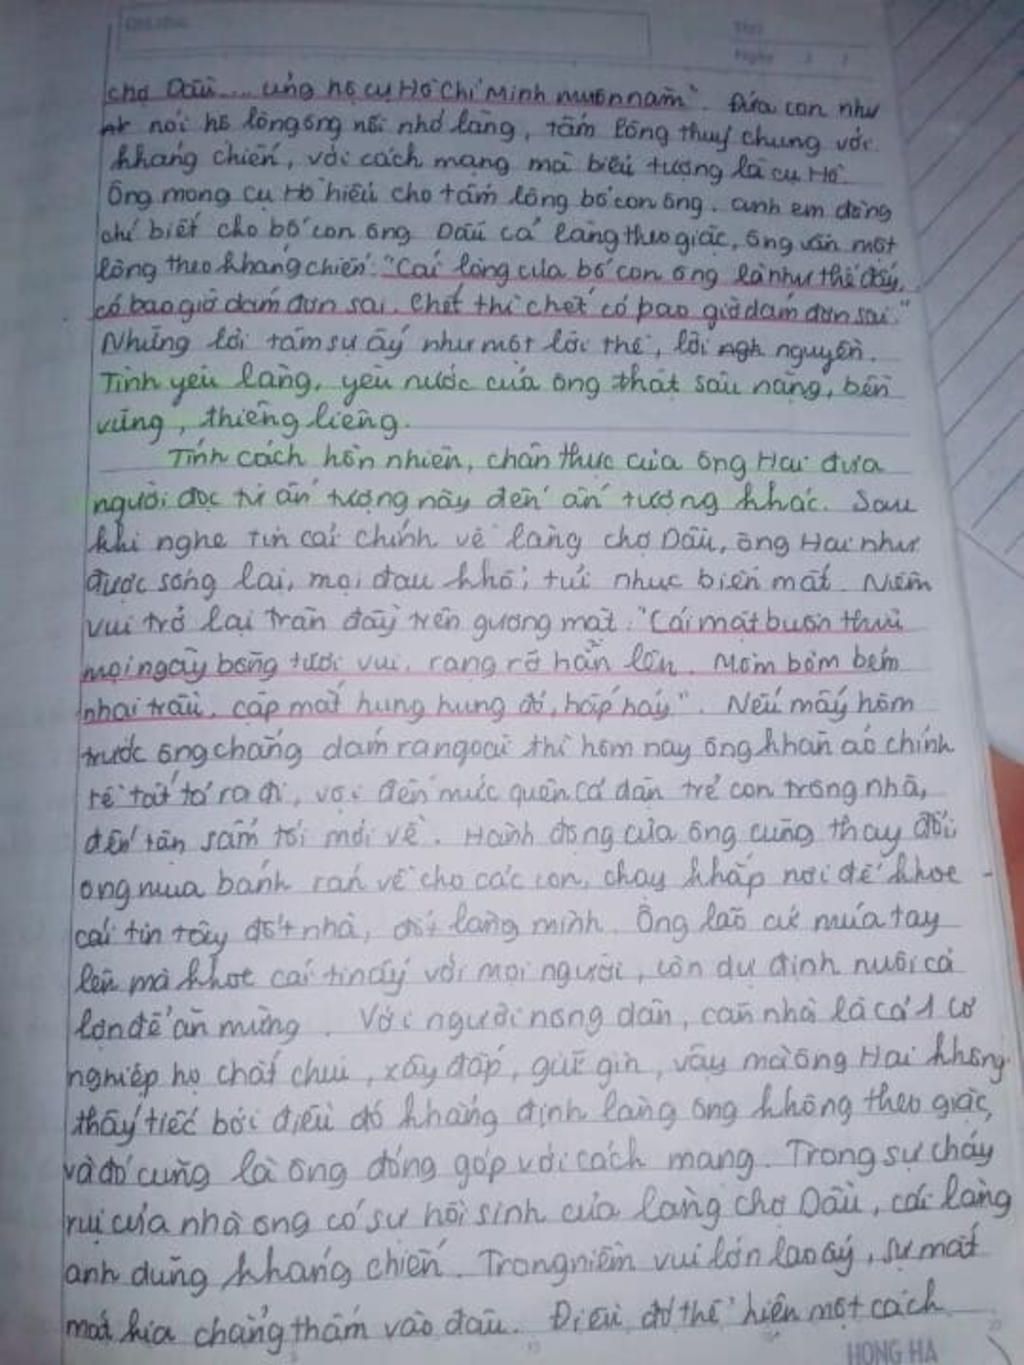 Thứ
Ngày / /
chợ Dầu... ủng hộ cụ Hồ Chí Minh muôn năm". Đứa con như
nói hộ lòng ông nỗi nhớ làng, tấm lòng thuỷ chung với
kháng chiến, với cách mạng mà biểu tượng là cụ Hồ.
Ông mong cụ Hồ hiểu cho tấm lòng bố con ông. anh em đồng
chí biết cho bố con ông Dẫu cả làng theo giặc, ông vẫn một
lòng theo kháng chiến: "Cái lòng của bố con ông là như thế đấy,
có bao giờ dám đơn sai. Chết thì chết có bao giờ dám đơn sai."
Những lời tâm sự ấy như một lời thề, lời ngh nguyền.
Tình yêu làng, yêu nước của ông thật sâu nặng, bền
vững, thiêng liêng.
Tính cách hồn nhiên, chân thực của ông Hai đưa
người đọc từ ấn tượng này đến ấn tượng khác. Sau
khi nghe tin cải chính về làng chợ Dầu, ông Hai như
được sống lại, mọi đau khổ, tủi nhục biến mất. Niềm
vui trở lại tràn đầy trên gương mặt: "Cái mặt buồn thiu
mọi ngày bỗng tươi vui, rạng rỡ hẳn lên. Mồm bỏm bẻm
nhai trầu, cặp mắt hung hung đỏ, hấp háy". Nếu mấy hôm
trước ông chẳng dám ra ngoài thì hôm nay ông khăn áo chỉnh
tề tất tả ra đi, vội đến mức quên cả dặn trẻ con trông nhà,
đến tận sẩm tối mới về. Hành động của ông cũng thay đổi
ông mua bánh rán về cho các con, chạy khắp nơi để khoe
cái tin tây đốt nhà, đốt làng mình. Ông lão cứ múa tay
lên mà khoe cái tin ấy với mọi người, còn dự định nuôi cả
lợn để ăn mừng. Với người nông dân, căn nhà là cả 1 cơ
nghiệp họ chắt chiu, xây đắp, giữ gìn, vậy mà ông Hai không
thấy tiếc bởi điều đó khẳng định làng ông không theo giặc,
và đó cũng là ông đóng góp với cách mạng. Trong sự cháy
rụi của nhà ông có sự hồi sinh của làng chợ Dầu, cái làng
anh dũng kháng chiến. Trong niềm vui lớn lao ấy, sự mất
mát kia chẳng thấm vào đâu. Điều đó thể hiện một cách
HONG HA